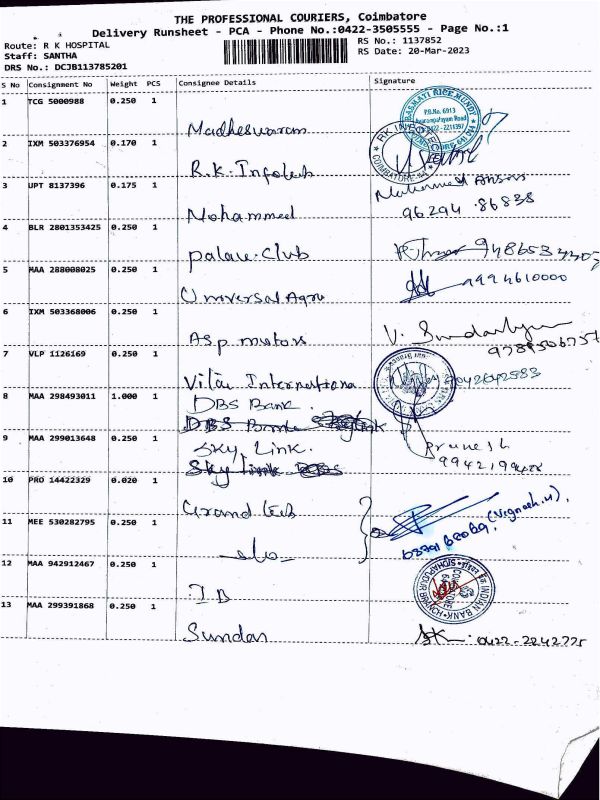 THE PROFESSIONAL COURIERS, Coimbatore
Delivery Runsheet - PCA - Phone No.:0422-3505555 - Page No.:1
Route: R K HOSPITAL
RS No.: 1137852
Staff: SANTHA
RS Date: 20-Mar-2023
DRS No.: DCJB113785201
S No Consignment No Weight PCS Consignee Details Signature
1 TCG 5000988 0.250 1
BASMATI RICE MUNDI
P.B.No. 6913
0422 - 2211397
Madheswaram
2 IXM 503376954 0.170 1
RK INFOTECH
COIMBATORE
R.K. Infotech
3 UPT 8137396 0.175 1
Mohammed Ansari
Mohammed 96294 86838
4 BLR 2801353425 0.250 1
Palace Club
5 MAA 288008025 0.250 1
9994610000
Universal Agro
6 IXM 503368006 0.250 1
Asp motors
V.
7 VLP 1126169 0.250 1
International
8 MAA 298493011 1.000 1
DBS Bank
DBS
9 MAA 299013648 0.250 1
Sky Link.
Sky link
10 PRO 14422329 0.020 1
Grand
11 MEE 530282795 0.250 1
(Vignesh.M).
-do-
12 MAA 942912467 0.250 1
INDIAN BANK
I B
13 MAA 299391868 0.250 1
0422-2242725